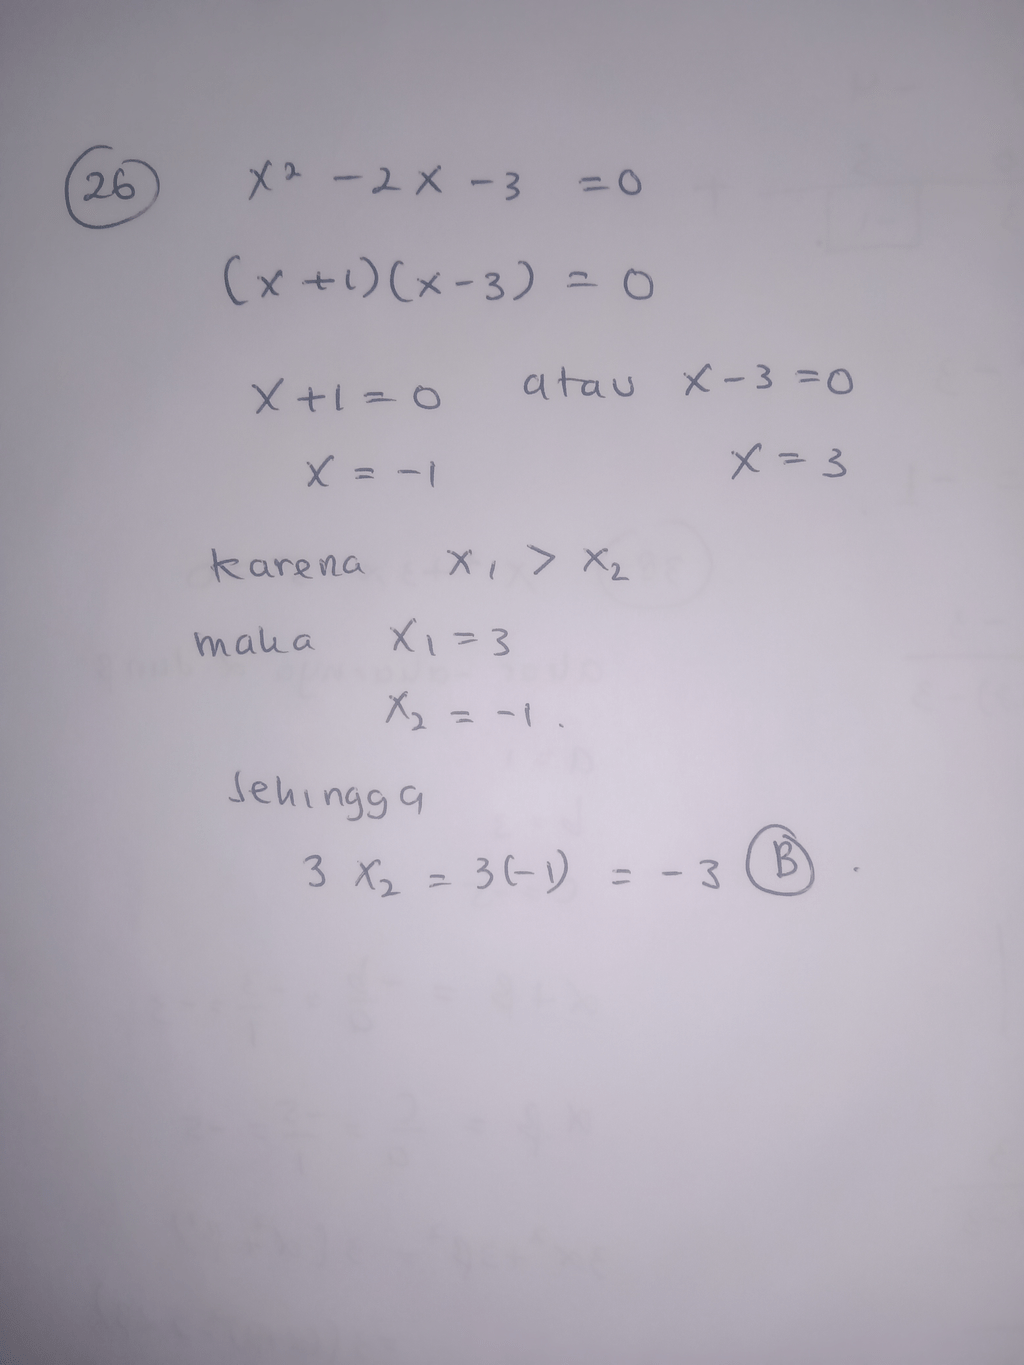 26 x² - 2x - 3 = 0
(x + 1)(x - 3) = 0
x + 1 = 0 atau x - 3 = 0
x = -1 x = 3
karena x₁ > x₂
maka x₁ = 3
x₂ = -1.
Sehingga
3 x₂ = 3(-1) = -3 B.